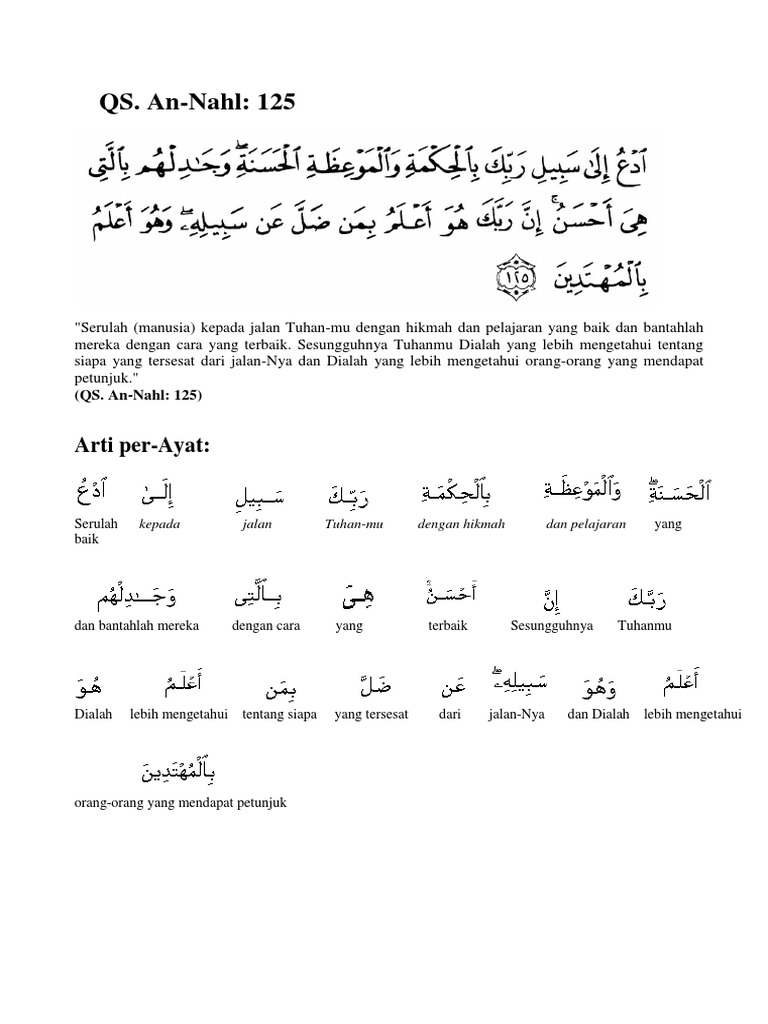 QS. An-Nahl: 125
ٱدۡعُ إِلَىٰ سَبِيلِ رَبِّكَ بِٱلۡحِكۡمَةِ وَٱلۡمَوۡعِظَةِ ٱلۡحَسَنَةِۖ وَجَٰدِلۡهُم بِٱلَّتِي
هِيَ أَحۡسَنُۚ إِنَّ رَبَّكَ هُوَ أَعۡلَمُ بِمَن ضَلَّ عَن سَبِيلِهِۦۖ وَهُوَ أَعۡلَمُ
بِٱلۡمُهۡتَدِينَ ١٢٥
"Serulah (manusia) kepada jalan Tuhan-mu dengan hikmah dan pelajaran yang baik dan bantahlah
mereka dengan cara yang terbaik. Sesungguhnya Tuhanmu Dialah yang lebih mengetahui tentang
siapa yang tersesat dari jalan-Nya dan Dialah yang lebih mengetahui orang-orang yang mendapat
petunjuk."
(QS. An-Nahl: 125)
Arti per-Ayat:
ٱدۡعُ إِلَىٰ سَبِيلِ رَبِّكَ بِٱلۡحِكۡمَةِ وَٱلۡمَوۡعِظَةِ ٱلۡحَسَنَةِۖ
Serulah kepada jalan Tuhan-mu dengan hikmah dan pelajaran yang
baik
وَجَٰدِلۡهُم بِٱلَّتِي هِيَ أَحۡسَنُۚ إِنَّ رَبَّكَ
dan bantahlah mereka dengan cara yang terbaik Sesungguhnya Tuhanmu
هُوَ أَعۡلَمُ بِمَن ضَلَّ عَن سَبِيلِهِۦۖ وَهُوَ أَعۡلَمُ
Dialah lebih mengetahui tentang siapa yang tersesat dari jalan-Nya dan Dialah lebih mengetahui
بِٱلۡمُهۡتَدِينَ
orang-orang yang mendapat petunjuk